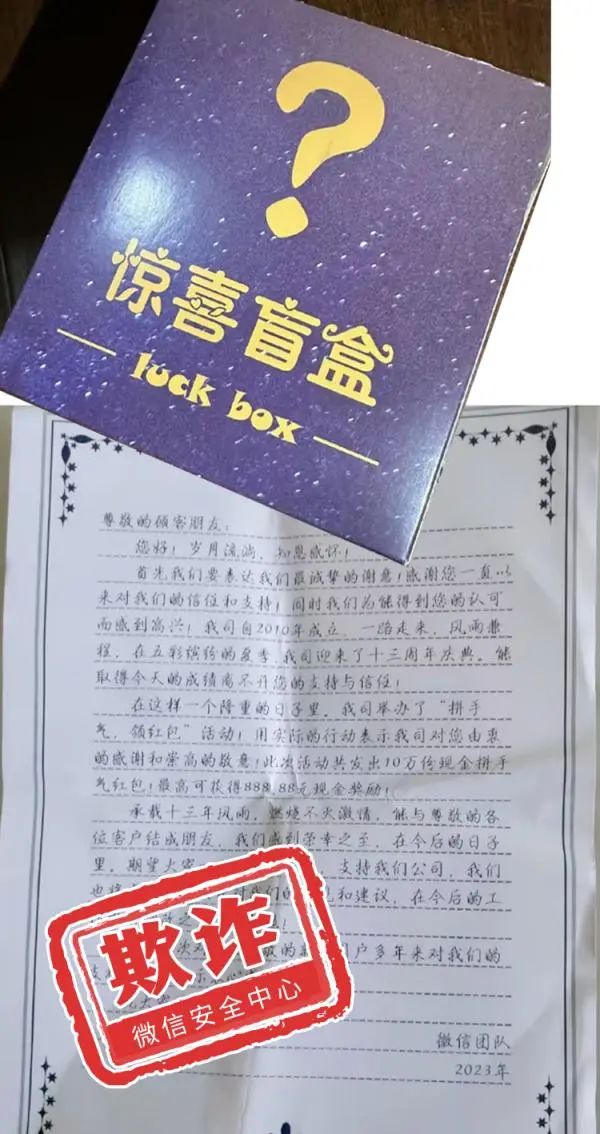 ?
惊喜盲盒
luck box
尊敬的顾客朋友：
您好！岁月流淌，知恩感怀！
首先我们要表达我们最诚挚的谢意！感谢您一直以
来对我们的信任和支持！同时我们为能得到您的认可
而感到高兴！我司自2010年成立，一路走来，风雨兼
程，在五彩缤纷的夏季，我司迎来了十三周年庆典。能
取得今天的成绩离不开您的支持与信任！
在这样一个隆重的日子里，我司举办了“拼手
气，领红包”活动！用实际的行动表示我司对您由衷
的感谢和崇高的敬意！此次活动共发出10万份现金拼手
气红包！最高可获得888.88元现金奖励！
承载十三年风雨，燃烧不灭激情，能与尊敬的各
位客户结成朋友，我们感到荣幸之至，在今后的日子
里，期望大家 支持我们公司，我们
也将 对我们的 见和建议，在今后的工
次对 敬的 户多年来对我们的
欺诈
微信安全中心
微信团队
2023年